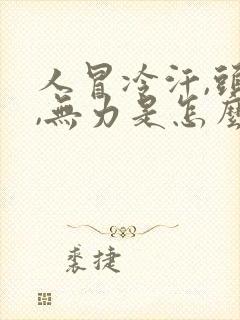 人冒冷汗,頭
,無力是怎麼
裘捷